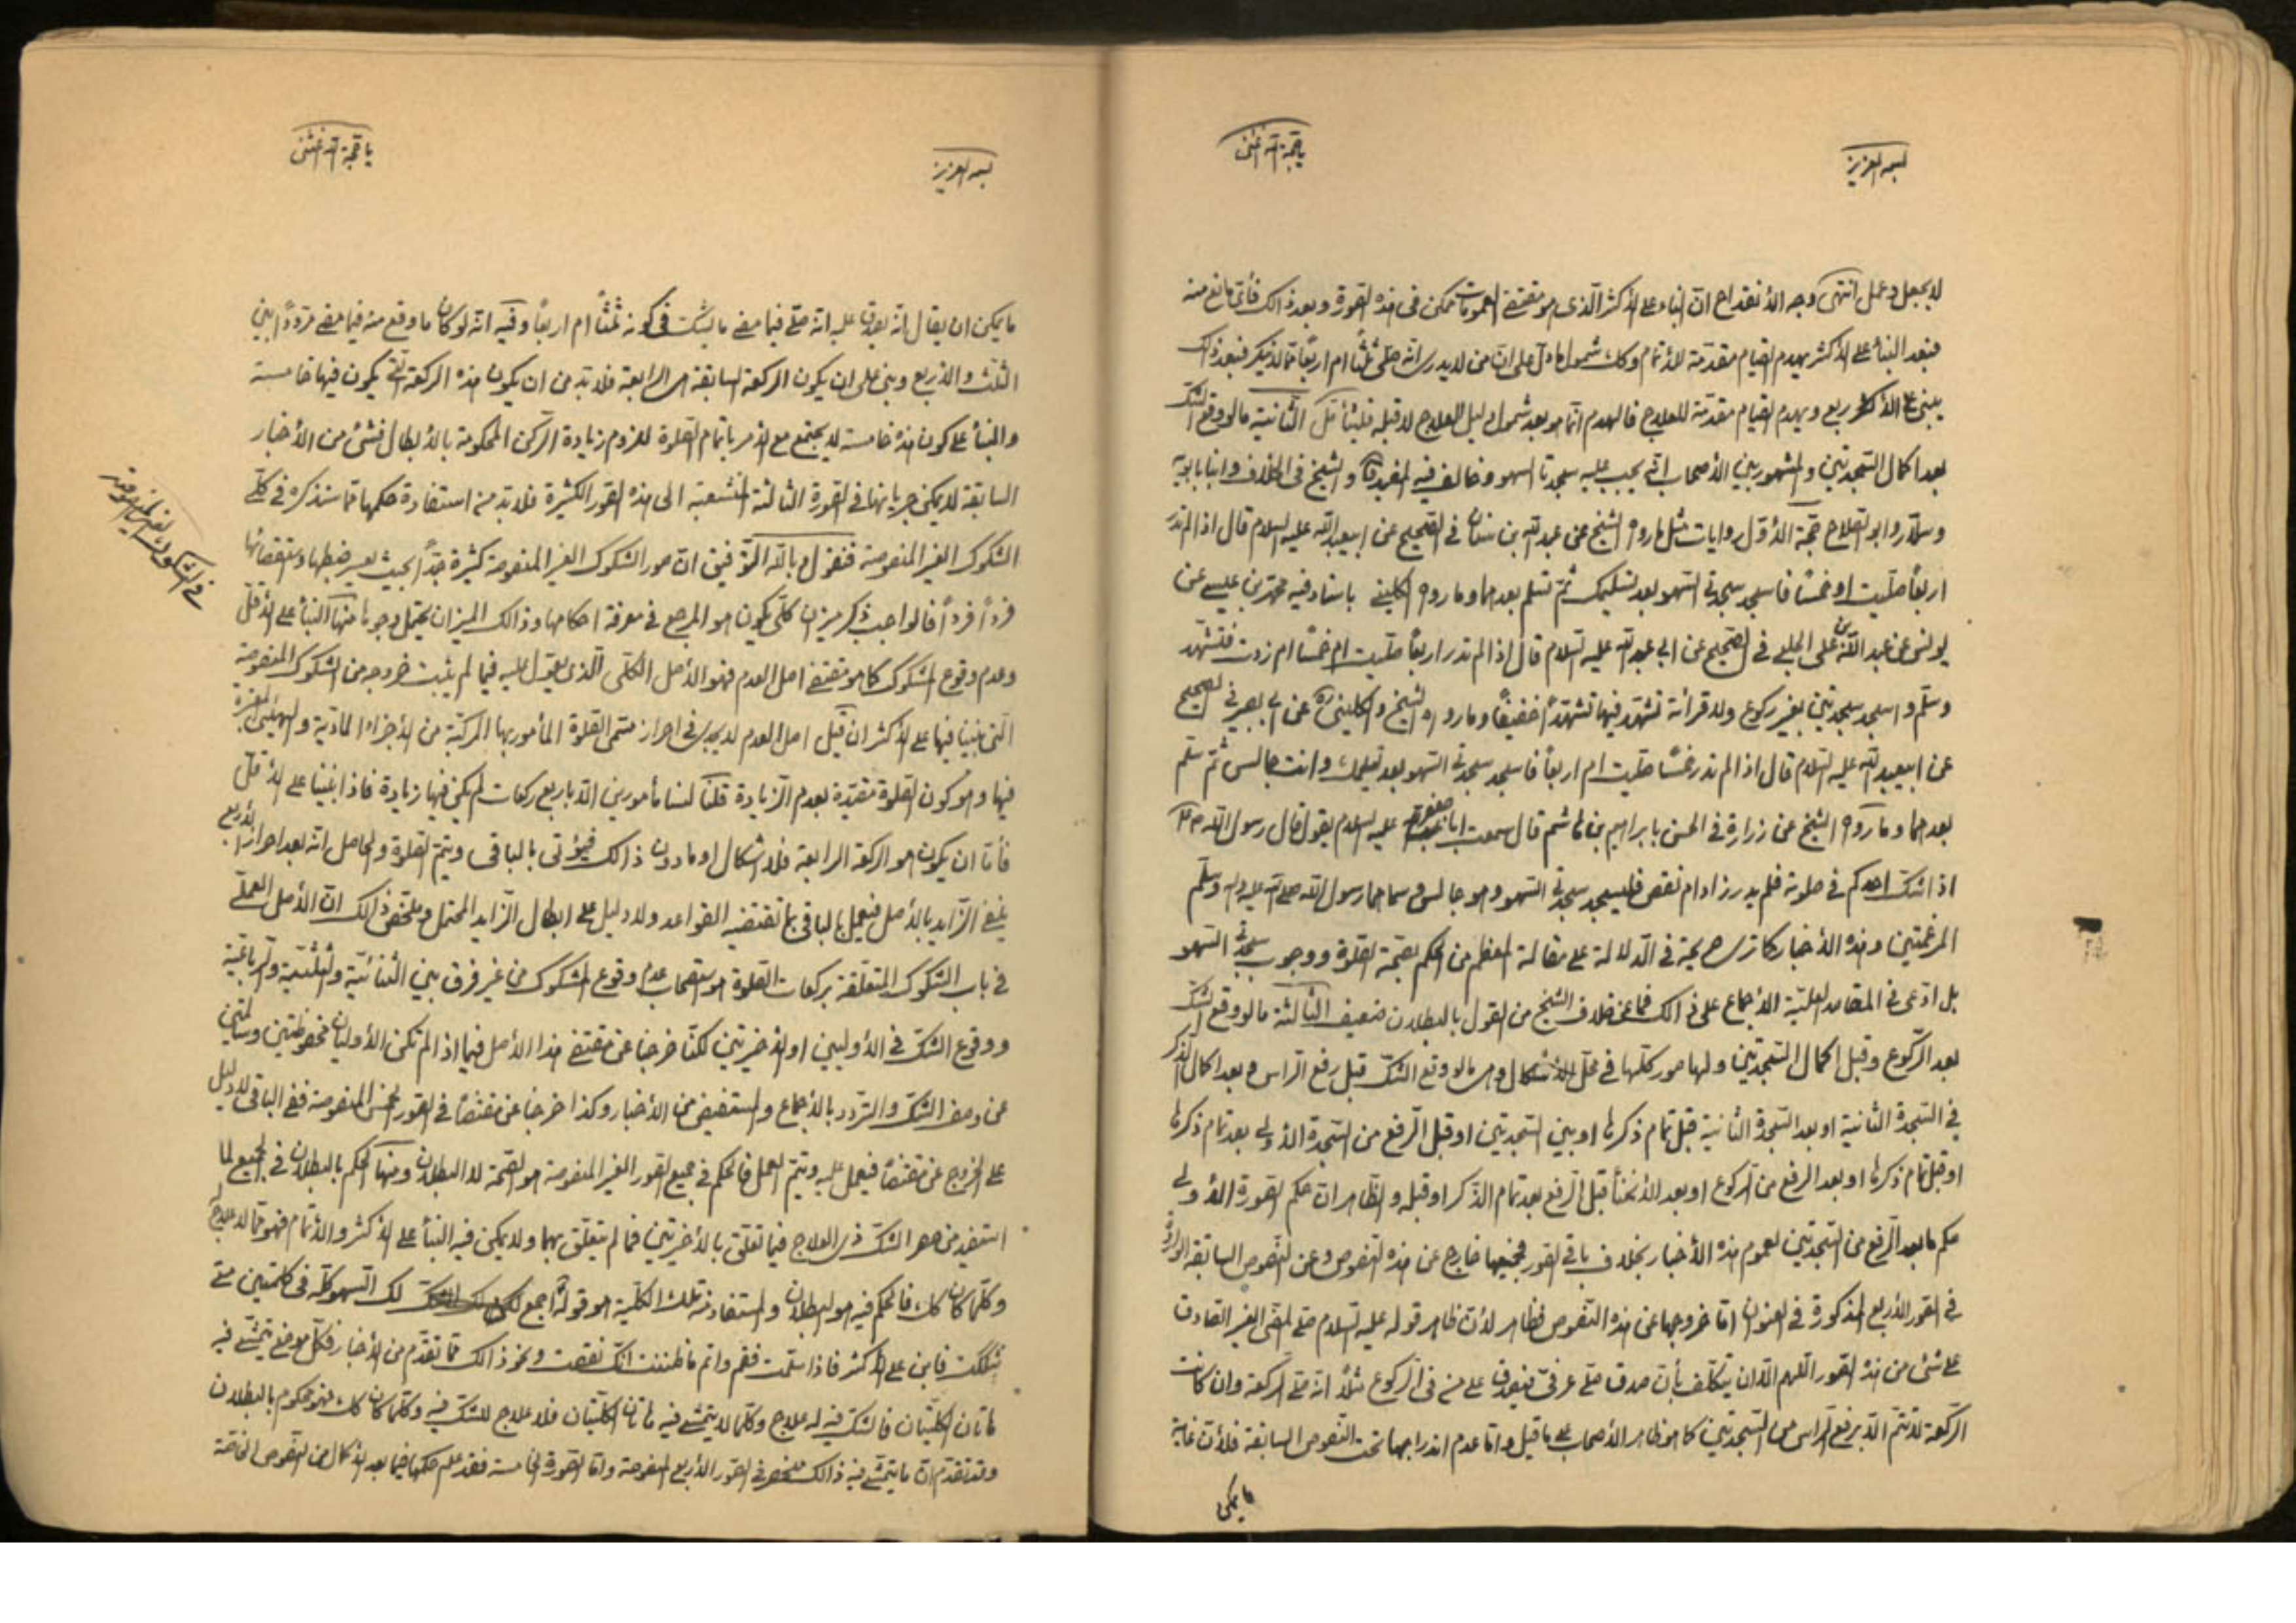 بسمه العزيز
يا حجة الله اغثنى
لا يجعل وعمل انتهى وجه الأنقداح ان البناء على الأكثر الّذى هو مقتضى العمومات ممكن فى هذه الصورة وبعد ذالك فأى مانع منه
فبعد البناء على الأكثر يهدم القيام مقدمة للأتمام وكك شمول ما دلّ على انّ من لا يدرى انّه صلّى ثلثاً ام اربعاً مما لا ينكر فبعد ذالك
يبنى على الأكثر ويهدم القيام مقدمة للعلاج فالهدم انّما هو بعد شمول دليل العلاج لا قبله الثّانية ما لو وقع الشك
بعد اكمال السّجدتين والمشهور بين الأصحاب انّه يجب عليه سجدتا السهو وخالف فيه المفيد والشيخ فى الخلاف وابنا بابويه
وسلّار وابو الصّلاح حجّة الأوّل روايات مثل ما رواه الشيخ عن عبد الله بن سنان فى الصّحيح عن ابيعبد الله عليه السلام قال اذا لم تدر
اربعاً صلّيت او خمساً فاسجد سجدتى السّهو بعد تسليمك ثمّ تسلم بعدهما وما رواه الكلينى باسناد فيه محمّد بن عيسى عن
يونس عن عبد اللّه بن على الحلبى فى الصّحيح عن ابى عبد الله عليه السّلام قال اذا لم تدر اربعاً صلّيت ام خمساً ام زدت فتشهّد
وسلّم واسجد سجدتين بغير ركوع ولا قرائة تشهّد فيها تشهّداً خفيفاً وما رواه الشيخ والكلينى عن ابى بصير فى الصحيح
عن ابيعبد الله عليه السّلام قال اذا لم تدر خمساً صلّيت ام اربعاً فاسجد سجدتى السّهو بعد تسليمك وانت جالس ثمّ تسلم
بعدهما وما رواه الشيخ عن زرارة فى الحسن بابراهيم بن هاشم قال سمعت ابا جعفر عليه السلام يقول قال رسول اللّه
اذا شكّ احدكم فى صلوته فلم يدر زاد ام نقص فليسجد سجدتى السّهو وهو جالس وسماهما رسول اللّه صلى الله عليه وآله وسلّم
المرغمتين وهذه الأخبار كما ترى صريحة فى الدّلالة على مقالة المعظم من الحكم بصحّة الصّلوة ووجوب سجدتى السّهو
بل ادّعى فى المقاصد العليّة الأجماع على ذالك فما عن خلاف الشيخ من القول بالبطلان ضعيف الثّالثة ما لو وقع الشكّ
بعد الرّكوع وقبل اكمال السّجدتين ولها صور كلّها فى محلّ الأشكال وهى ما لو وقع الشكّ قبل رفع الرّاس وبعد اكمال الذّكر
فى السّجدة الثّانية او بعد السّجدة الثانية قبل تمام ذكرها او بين السّجدتين او قبل الرّفع من السّجدة الأولى بعد تمام ذكرها
او قبل تمام ذكرها او بعد الرفع من الرّكوع او بعد الأنحناء قبل الرّفع بعد تمام الذّكر او قبله والظّاهر انّ حكم الصّورة الأولى
حكم ما بعد الرّفع من السّجدتين لعموم هذه الأخبار بخلاف باقى الصّور فجميعها خارج عن هذه النّصوص وعن النّصوص السابقة الواردة
فى الصّور الأربع المذكورة فى العنوان امّا خروجها عن هذه النّصوص فظاهر لأنّ ظاهر قوله عليه السّلام صلّى المضىّ الغير الصّادق
على شئ من هذه الصّور اللّهم الّا ان يتكلّف بأنّ صدق صلّى عرفىّ فيصدق على من فى الرّكوع مثلاً انّه صلّى الرّكعة وان كانت
الرّكعة لا تتمّ الّا برفع الرّاس من السّجدتين كما هو ظاهر الأصحاب على ما قيل وامّا عدم اندراجها تحت النّصوص السابقة فلأنّ غاية
ما يمكن
بسمه العزيز
يا حجة الله اغثنى
ما يمكن ان يقال انّه يصدق عليه انّه صلّى فيما مضى ما يشكّ فى كونه ثلثاً ام اربعاً وفيه انّه لو كان ما وقع منه فيما مضى مردّداً بين
الثّلث والأربع وبنى على ان يكون الركعة السابقة هى الرابعة فلا بدّ من ان يكون هذه الركعة الّتى يكون فيها خامسة
والبناء على كون هذه خامسة لا يجتمع مع الأمر باتمام الصّلوة للزوم زيادة الرّكن المحكومة بالأبطال فشئ من الأخبار
السابقة لا يمكن جريانها فى الصّورة الثالثة المنشعبة الى هذه الصّور الكثيرة فلا بدّ من استفادة حكمها ممّا سنذكره فى حكم
الشكوك الغير المنصوصة فنقول وباللّه التّوفيق انّ صور الشكوك الغير المنصوصة كثيرة جدّاً بحيث يعسر ضبطها واستقصائها
فرداً فرداً فالواجب ذكر ميزان كلّى يكون هو المرجع فى معرفة احكامها وذالك الميزان يحتمل وجوهاً منها البناء على الأقلّ
وعدم وقوع المشكوك كما هو مقتضى اصل العدم فهو الأصل الكلّى الّذى يعوّل عليه فيما لم يثبت خروجه من الشكوك المنصوصة
الّتى بنينا فيها على الأكثر ان قيل اصل العدم لا يجدى فى احراز مسمّى الصّلوة المأمور بها المركّبة من الأجزاء المادّية والهيئة المعتبرة
فيها وهو كون الصّلوة مقيّدة بعدم الزّيادة قلنا لسنا مأمورين الّا باربع ركعات لم يكن فيها زيادة فاذا بنينا على الأقلّ
فأمّا ان يكون هو الركعة الرابعة فلا اشكال او ما دون ذالك فيؤتى بالباقى ويتمّ الصّلوة والحاصل انّه بعد احراز الأربع
ينفى الزّايد بالأصل فيعمل بالباقى بما تقتضيه القواعد ولا دليل على ابطال الزّايد المحتمل وملخّص ذالك انّ الأصل العملىّ
فى باب الشكوك المتعلّقة بركعات الصّلوة هو استصحاب عدم وقوع المشكوك من غير فرق بين الثّنائيّة والثّلثيّة والرّباعيّة
ووقوع الشكّ فى الأوليين او الأخيرتين لكنّا خرجنا عن مقتضى هذا الأصل فيما اذا لم تكن الأوليان محفوظتين وسالمتين
عن وصف الشكّ والتّردد بالأجماع والمستفيض من الأخبار وكذا خرجنا عن مقتضاه فى الصّور الخمس المنصوصة ففى الباقى لا دليل
على الخروج عن مقتضاه فيعمل عليه ويتمّ العمل فالحكم فى جميع الصّور الغير المنصوصة هو الصّحّة لا البطلان ومنها الحكم بالبطلان فى الجميع لما
استفيد من حصر الشكّ ذى العلاج فيما تعلّق بالأخيرتين فما لم يتعلّق بهما ولا يمكن فيه البناء على الأكثر والأتمام فهو ممّا لا علاج
وكلّما كان كك فالحكم فيه هو البطلان والمستفاد منه تلك الكلّية هو قوله اجمع لك السّهو كلّه فى كلمتين متى
شككت فابن على الأكثر فاذا سلّمت فقم واتم ما ظننت انّك نقصت ونحو ذالك ممّا تقدّم من الأخبار فكلّ موضع يتمشّى فيه
هاتان الكلّيتان فالشكّ فيه له علاج وكلّما لا يتمشّى فيه هاتان الكلّيتان فلا علاج للشكّ فيه وكلّما كان كك فهو محكوم بالبطلان
وقد تقدّم انّ ما يتمشّى فيه ذالك منحصر فى الصّور الأربع المنصوصة وامّا الصّورة الخامسة فقد علم حكمها فيما بعد الأكمال من النّصوص الخاصّة
فى الشكوك الغير المنصوصة